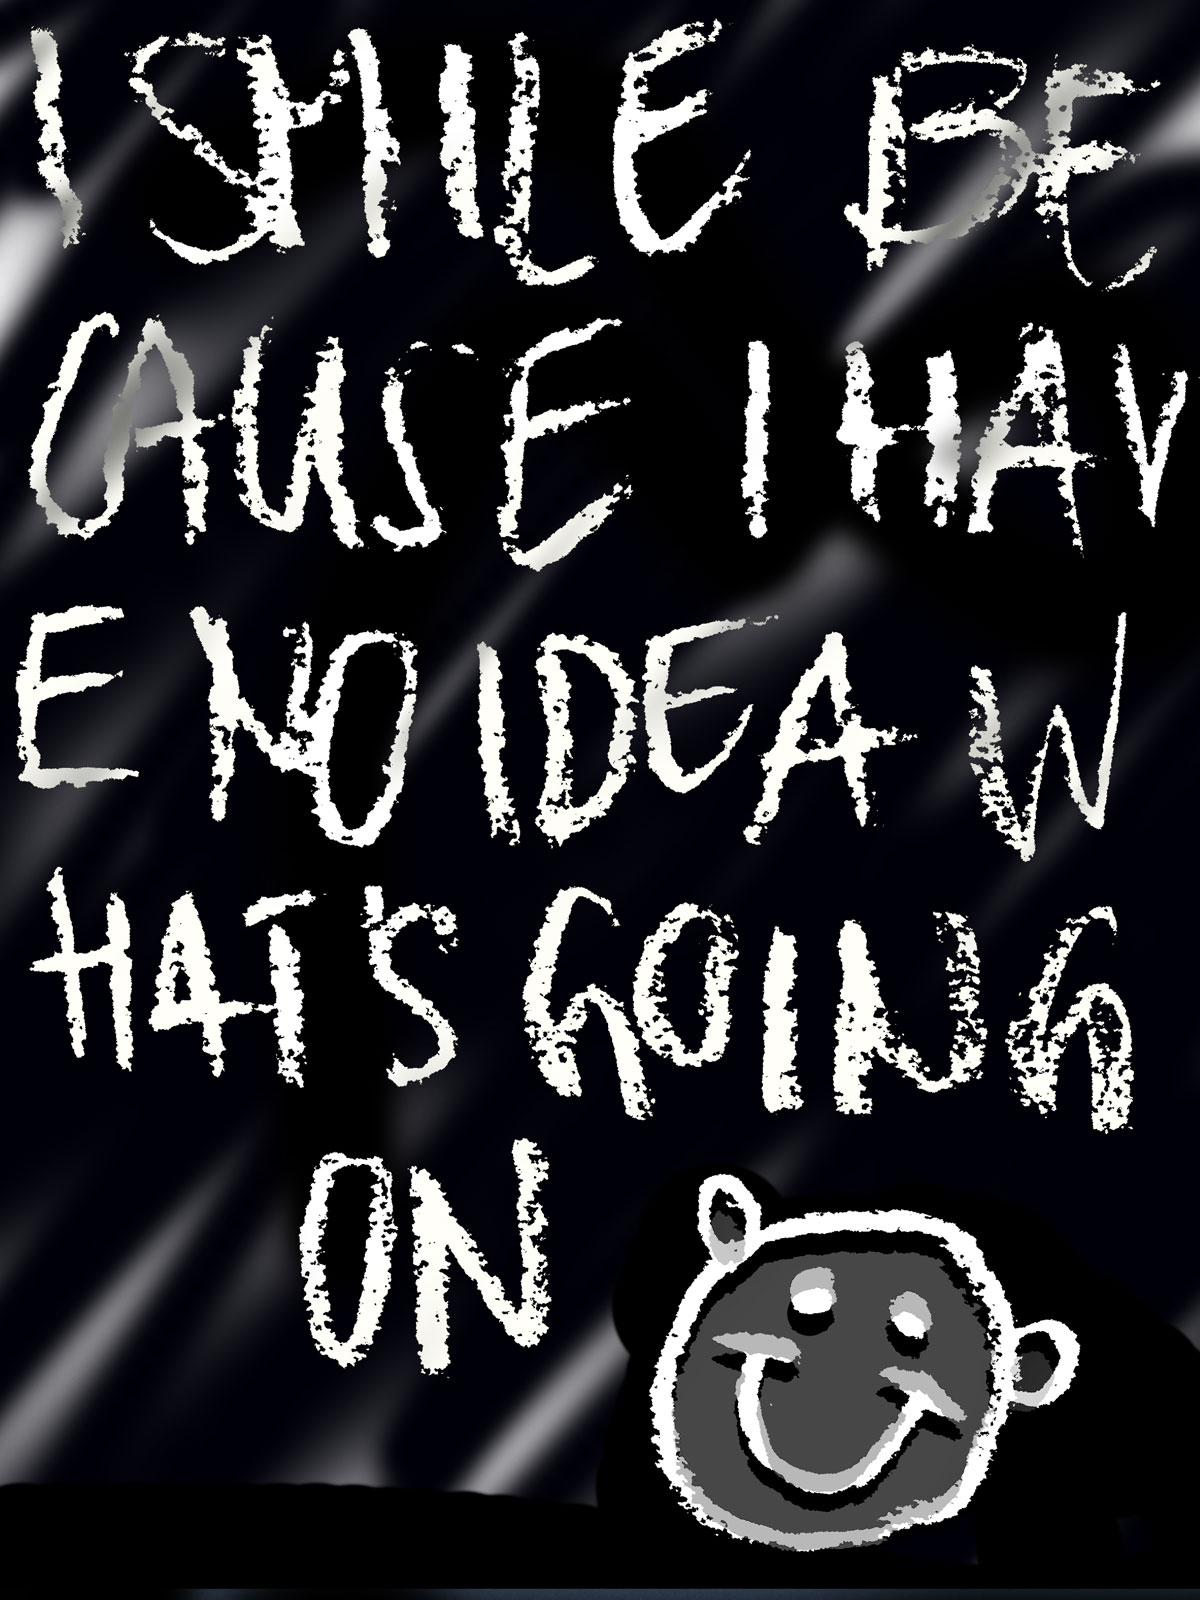 I SMILE BE
CAUSE I HAV
E NO IDEA W
HAT'S GOING
ON